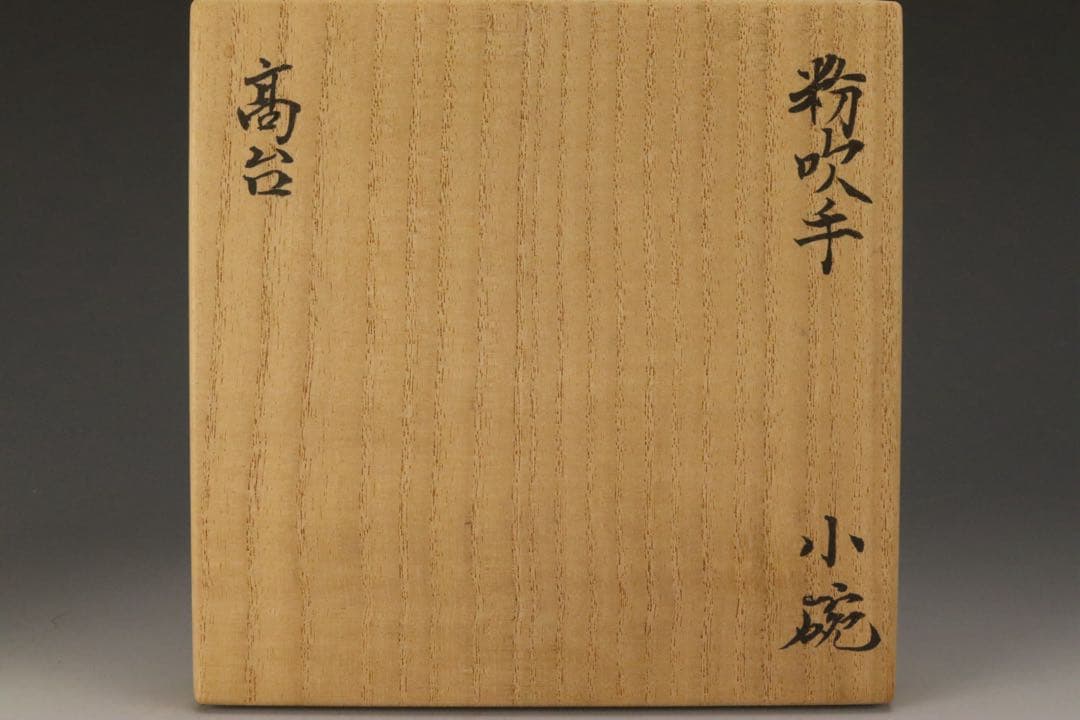 粉吹手
小碗
髙台